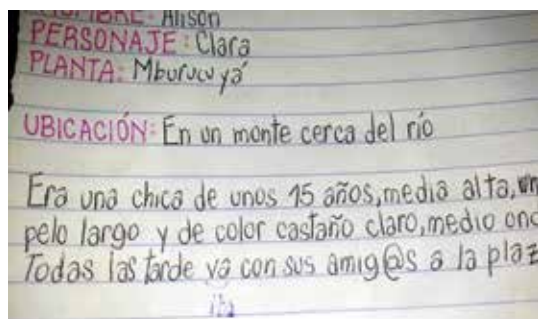 NOMBRE: Alison
PERSONAJE: Clara
PLANTA: Mburucuyá
UBICACIÓN: En un monte cerca del río
Era una chica de unos 15 años, media alta, un
pelo largo y de color castaño claro, medio ond
Todas las tarde va con sus amig@s a la plaz
iba